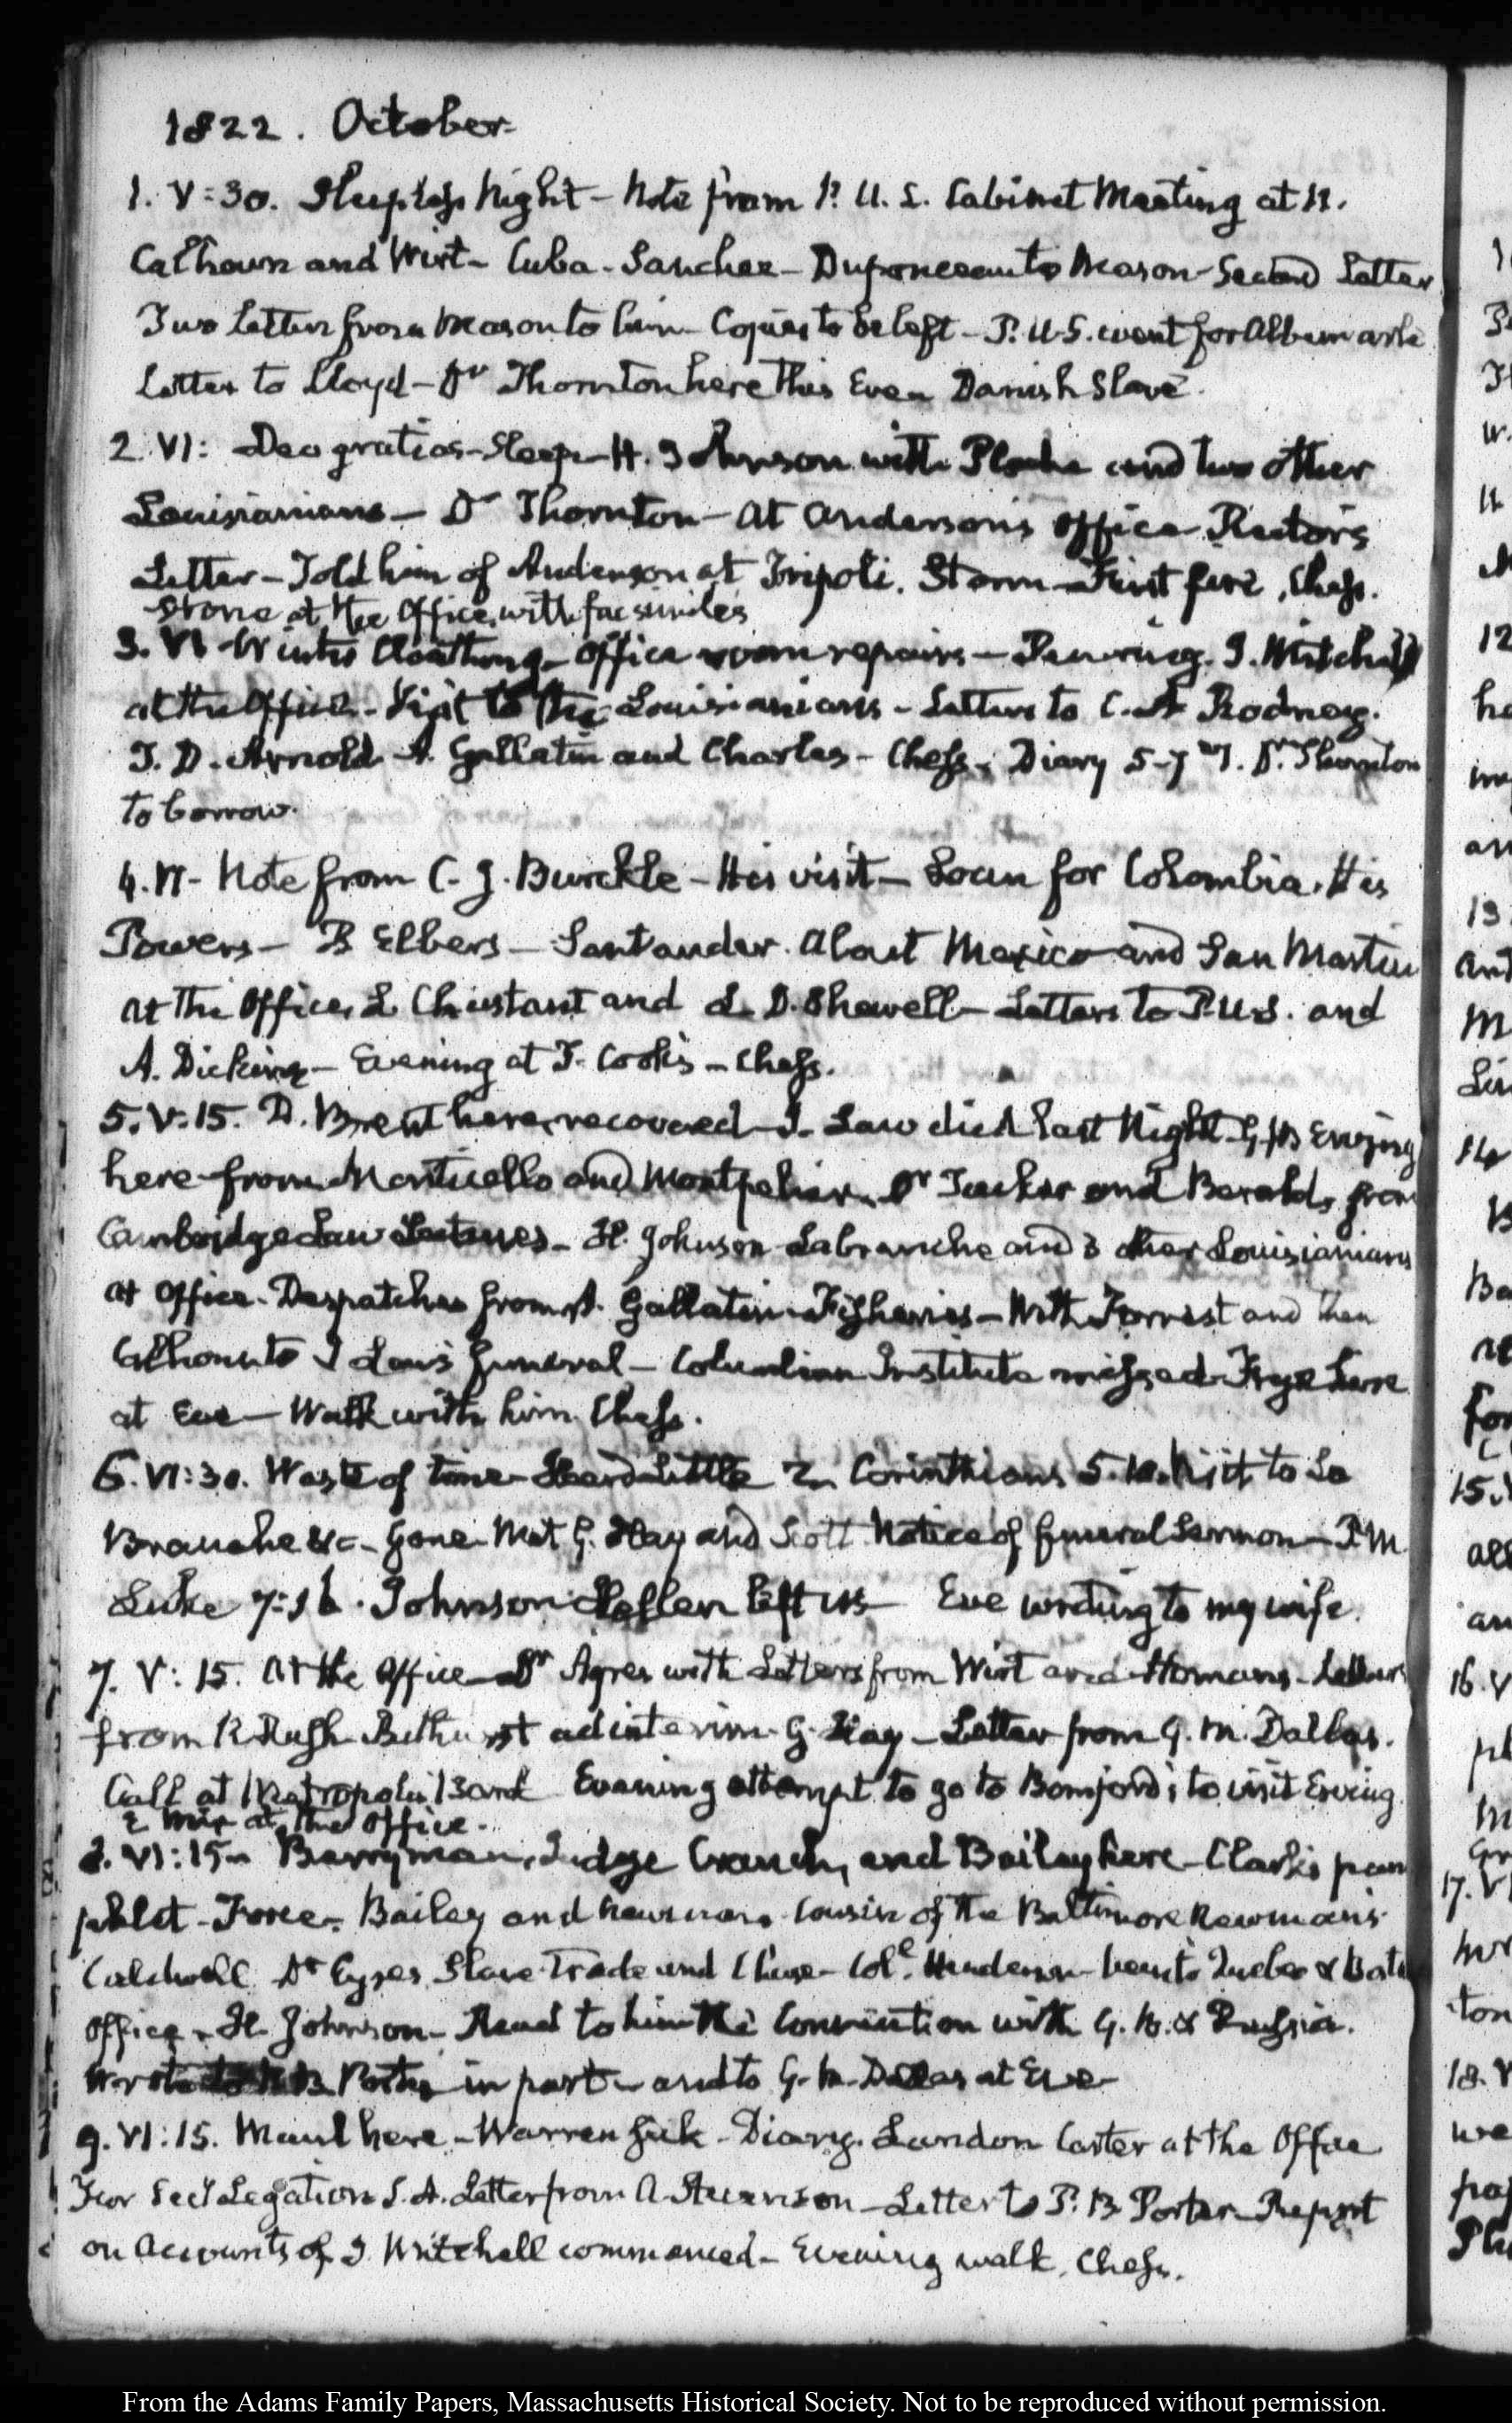 1822. October.
1. V:30. Sleepless Night – Note from P. U. S. Cabinet Meeting at 11.
Calhoun and Wirt – Cuba – Sanchez – Duponceau to Mason – Second Letter
Two Letters from Mason to him – Copies to be left – P. U.S. went for Albemarle
Letter to Lloyd – Dr Thornton here this Eve – Danish Slave.
2. VI: Deo gratias – Sleep – H. Johnson with Plauche and two other
Louisianians – Dr Thornton – At Anderson's Office – Rector's
Letter – Told him of Anderson at Tripoli. Storm – First fire, Chess.
Stone at the Office with fac similes
3. VI Winter Cloathing – Office room repairs – J. Mitchell
at the Office – Visit to the Louisianians – Letters to C. A Rodney.
T. D. Arnold A. Gallatin and Charles – Chess. Diary 5–7 Dr. Thornton
to borrow.
4. VI – Note from C. J. Burckle – His visit – Loan for Colombia. His
Powers – B Elbers – Santander. About Mexico and San Martin
At the Office, L Chustant and L. D. Shewell – Letters to P.U.S. and
A. Dickins – Evening at T. Cook's – Chess.
5. V:15. D. Brent here, recovered – J. Law died last Night – G. W. Erving
here from Monticello and Montpelier. Dr Tucker and from
Cambridge Law Lectures – H. Johnson Labranche and 3 other Louisianians
at Office – Despatches from A. Gallatin – Fisheries – With Forrest and then
Calhoun to J Law's funeral – Columbian Institute missed – Frye here
at Eve – Walk with him. Chess.
6. VI:30. Waste of time – Heard Little 2. Corinthians 5. 10. Visit to La
Branche &c – gone – Met G. Hay and Scott. Notice of funeral Sermon – P.M.
Luke 7: Johnson Hellen left us – Eve writing to my wife.
7. V: 15. At the Office – Dr Ayres with Letters from Wirt and Homans – Letters
from R Rush – Bathurst ad interim – G. Hay – Letter from G. M. Dallas.
Call at Metropolis Bank Evening attempt to go to Bomford's to visit Erving
at the Office.
8. VI:15 – Berryman, Judge Cranch, and Bailey here – Clark's pam
phlet – Force. Bailey and Newman. Cousin of the Baltimore Newmans
Caldwell Dr Ayres Slave Trade and Chew – Col. Henderson – been to Quebec &
Office – H. Johnson – Read to him the Convention with G. B. & Russia.
Wrote to P B Porter in part – and to G. M. Dallas at Eve –
9. VI:15. Maul here – Warren sick – Diary. Landon Carter at the Office
For Secy Legation S. A. Letter from A Stevenson – Letter to P. B Porter – Report
on Accounts of J. Mitchell commenced – Evening walk, Chess.
From the Adams Family Papers, Massachusetts Historical Society. Not to be reproduced without permission.